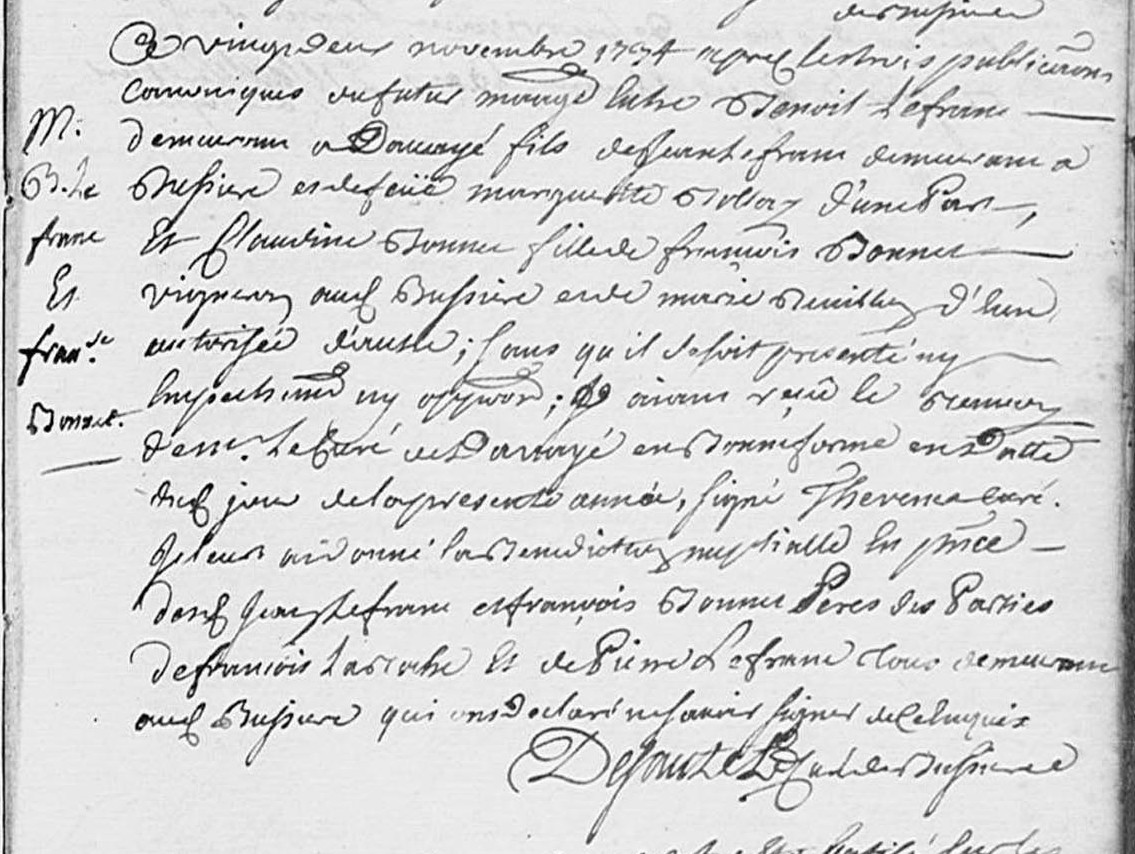 de Bussiere
Ce vingt deux novembre 1734 apres les trois publicaõns
canoniques du futur mariage Entre Benoit Lefranc
demeurant a Davayé fils de Jean Lefranc demeurant a
Bussiere et de feüe margueritte d'une Part,
Et Claudine Bonnet fille de françois Bonnet
vigneron aud Bussiere et de marie d'huy
autorisée d'autre; sans qu'il se soit presenté ny
Empechemd ny opposaõn; et aiant reçû le
de mr. Le Curé de Davayé en Bonne forme en Datte
dud jour de la presente année, signé Thevenet curé.
Je leur ai donné la Benediction nuptialle En pñce
desd Jean Lefranc et françois Bonnet Peres des Parties
de françois Laroche Et de Pierre Lefranc tous demeurant
aud Bussiere qui ont Declaré ne savoir signer de ce Enquis
Curé de Bussiere
M.
B. Le
franc
Et
Bonnet.